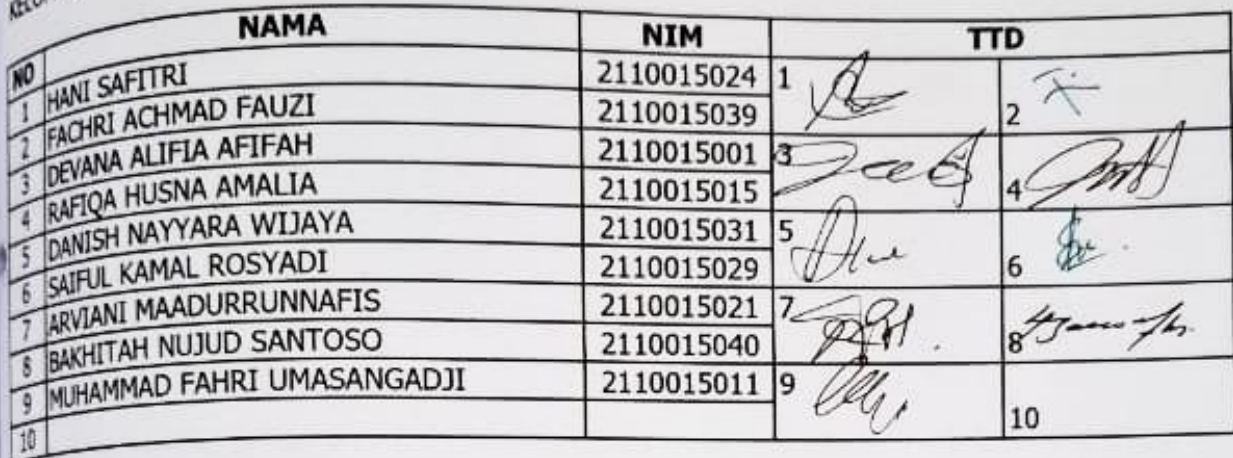 NO NAMA NIM TTD
1 HANI SAFITRI 2110015024 1
2 FACHRI ACHMAD FAUZI 2110015039 2
3 DEVANA ALIFIA AFIFAH 2110015001 3
4 RAFIQA HUSNA AMALIA 2110015015 4
5 DANISH NAYYARA WIJAYA 2110015031 5
6 SAIFUL KAMAL ROSYADI 2110015029 6
7 ARVIANI MAADURRUNNAFIS 2110015021 7
8 BAKHITAH NUJUD SANTOSO 2110015040 8
9 MUHAMMAD FAHRI UMASANGADJI 2110015011 9
10 10